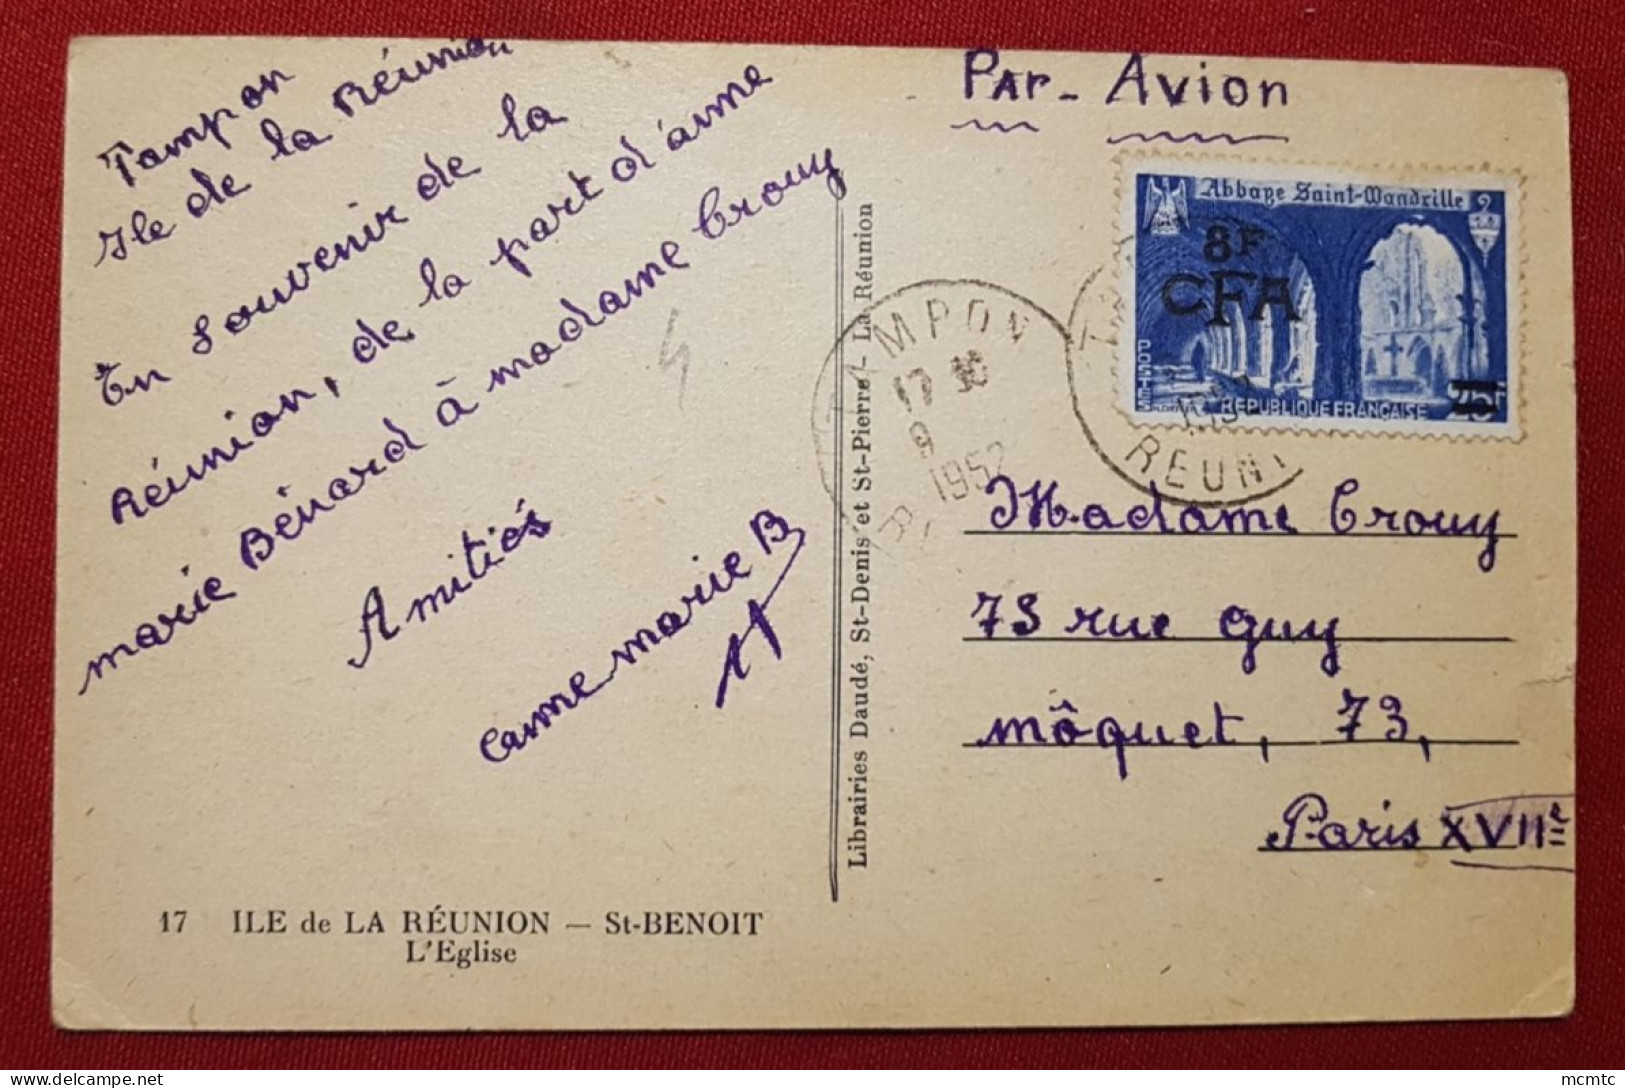 Tampon
Ile de la Réunion
En souvenir de la
Réunion, de la part d'anne
marie Bénard à madame Crouy
Amitiés
anne marie B
17 ILE de LA RÉUNION — St-BENOIT
L'Eglise
Librairies Daudé, St-Denis et St-Pierre - La Réunion
PAR - AVION
Abbaye Saint-Wandrille
8F
CFA
POSTES
REPUBLIQUE FRANÇAISE 25F
MPON
17 16
9
1952
RE
REUNI
Madame Crouy
73 rue guy
môquet, 73,
Paris XVIIe
mcmtc